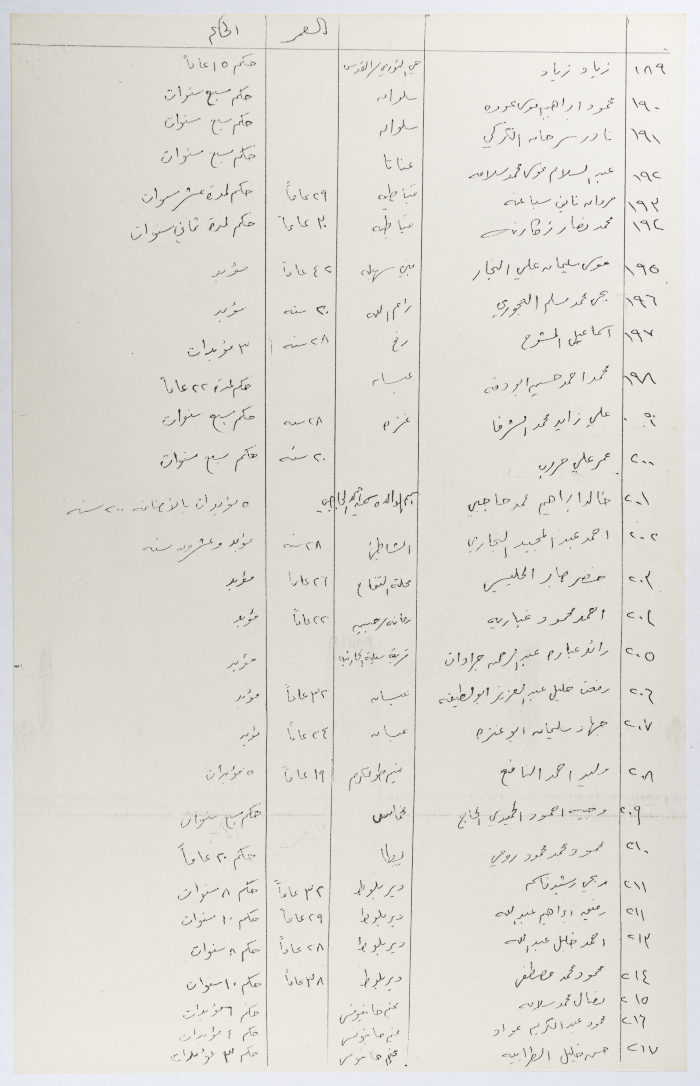 العمر الحكم
١٨٩ زياد زياد حي الثوري/القدس حكم ١٥ عاماً
١٩٠ محمود ابراهيم موسى عوده سلوان حكم سبع سنوات
١٩١ نادر سرحان التركي سلوان حكم سبع سنوات
١٩٢ عبد السلام موسى محمد سلامه عناتا حكم سبع سنوات
١٩٣ مروان ناجي سباعنه قباطيه ٢٩ عاماً حكم لمدة عشر سنوات
١٩٤ محمد نضار زكارنه قباطيه ٣٠ عاماً حكم لمدة ثماني سنوات
١٩٥ موسى سليمان علي النجار بني سهيله ٤٢ عاماً مؤبد
١٩٦ يحيى محمد مسلم النجوري رام الله ٣٠ سنه مؤبد
١٩٧ اسماعيل رفح ٢٨ سنه ٣ مؤبدات
١٩٨ محمد احمد حسين ابو دقه عبسان حكم لمدة ٢٢ عاماً
علي زايد محمد الشرفا غزه ٢٨ سنه حكم سبع سنوات
٢٠٠ عمر علي حروب ٢٠ سنه حكم سبع سنوات
٢٠١ خالد ابراهيم محمد حاجبي اسم الوالده ٥ مؤبدات بالاضافه ٢٠٠ سنه
٢٠٢ احمد عبد المجيد النجاري الشاطئ ٢٨ سنه مؤبد وعشرون سنه
٢٠٣ خضر صابر الحليسي محلة التفاح ٢٦ عاماً مؤبد
٢٠٤ احمد محمود غباريه رمانه/جنين ٢٢ عاماً مؤبد
٢٠٥ رائد عباره عبد الرحمن جرادات قرية سيلة الحارثيه مؤبد
٢٠٦ رفعت خليل عبد العزيز ابو لطيفه عبسان ٣٢ عاماً مؤبد
٢٠٧ جهاد سليمان ابو عنزه عبسان ٢٤ عاماً مؤبد
٢٠٨ وليد احمد النافع مخيم طولكرم ١٩ عاماً ٥ مؤبدات
٢٠٩ وجيه احمود الحميدي الحاج مخماس حكم سبع سنوات
٢١٠ محمود محمد محمود روحي يطا حكم ٢٠ عاماً
٢١١ ربحي رشيد قاسم دير بلوط ٣٢ عاماً حكم ٨ سنوات
٢١١ رفيق ابراهيم عبد الله دير بلوط ٢٩ عاماً حكم ١٠ سنوات
٢١٣ احمد خليل عبد الله دير بلوط ٢٨ عاماً حكم ٨ سنوات
٢١٤ محمود محمد مصطفى دير بلوط ٣٨ عاماً حكم ١٠ سنوات
٢١٥ نضال محمد سلامه مخيم خانيونس حكم ٦ مؤبدات
٢١٦ محمود عبد الكريم عواد مخيم خانيونس حكم ٤ مؤبدات
٢١٧ حسن خليل الطرابيه مخيم خانيونس حكم ٣ مؤبدات